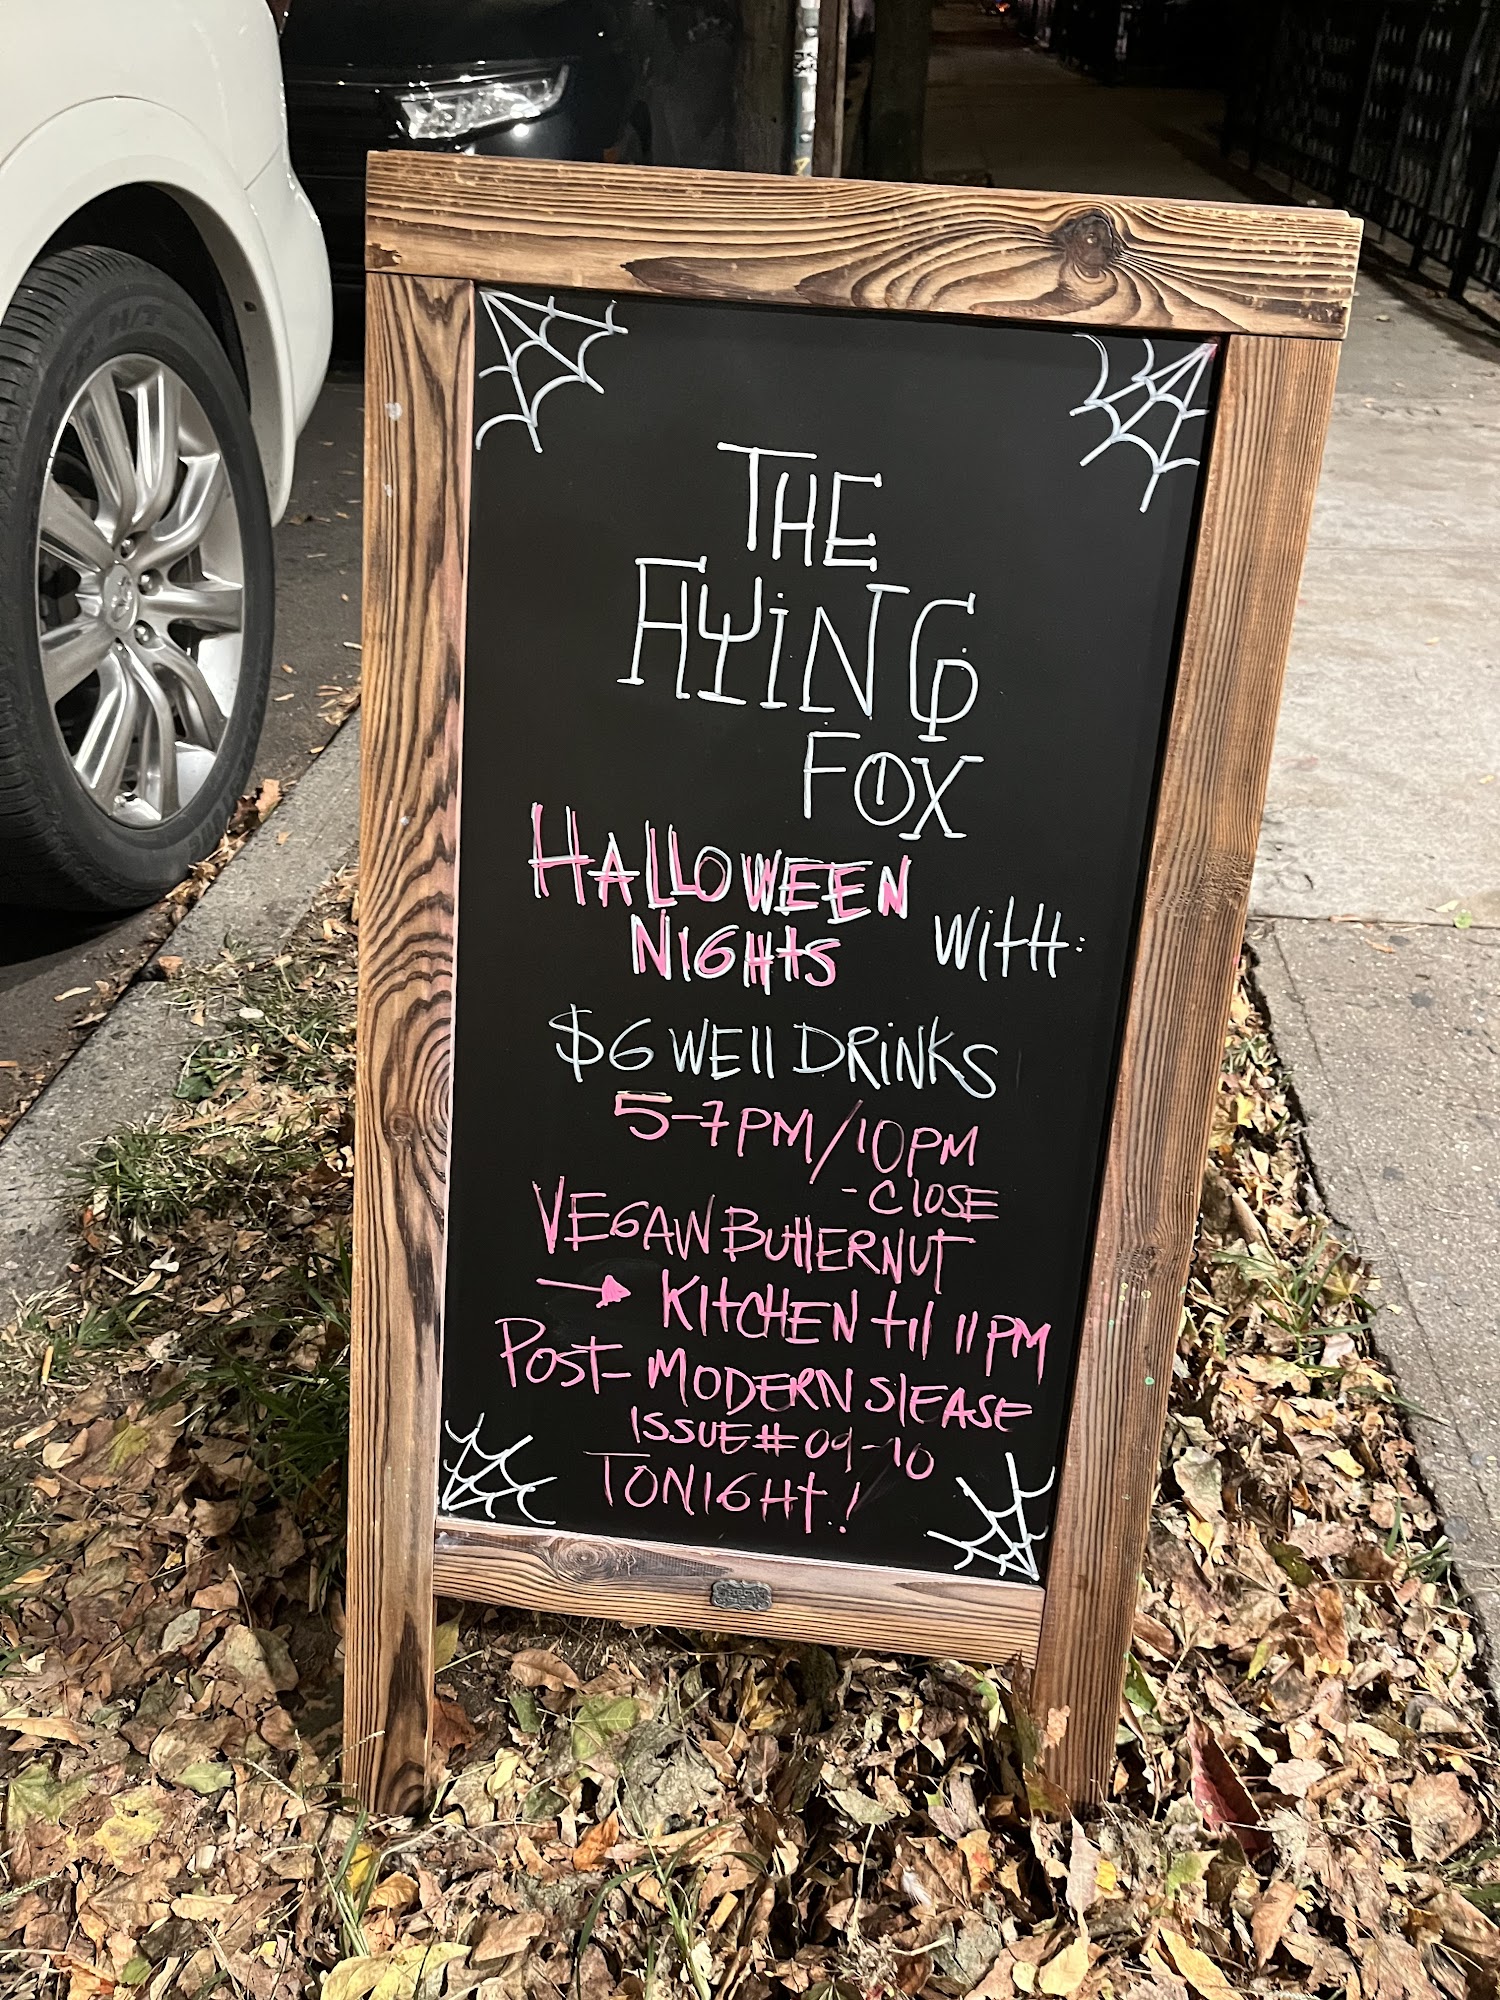 THE
FLYiNG
FOX
HALLOWEEN
NIGHtS WitH:
$6 WEll DRiNKS
5-7PM/10PM
- ClOSE
VEGAN BUttERNUT
→ KitCHEN til 11PM
POST-MODERN SlEASE
ISSUE# 09-10
TONIGHt!
H/T